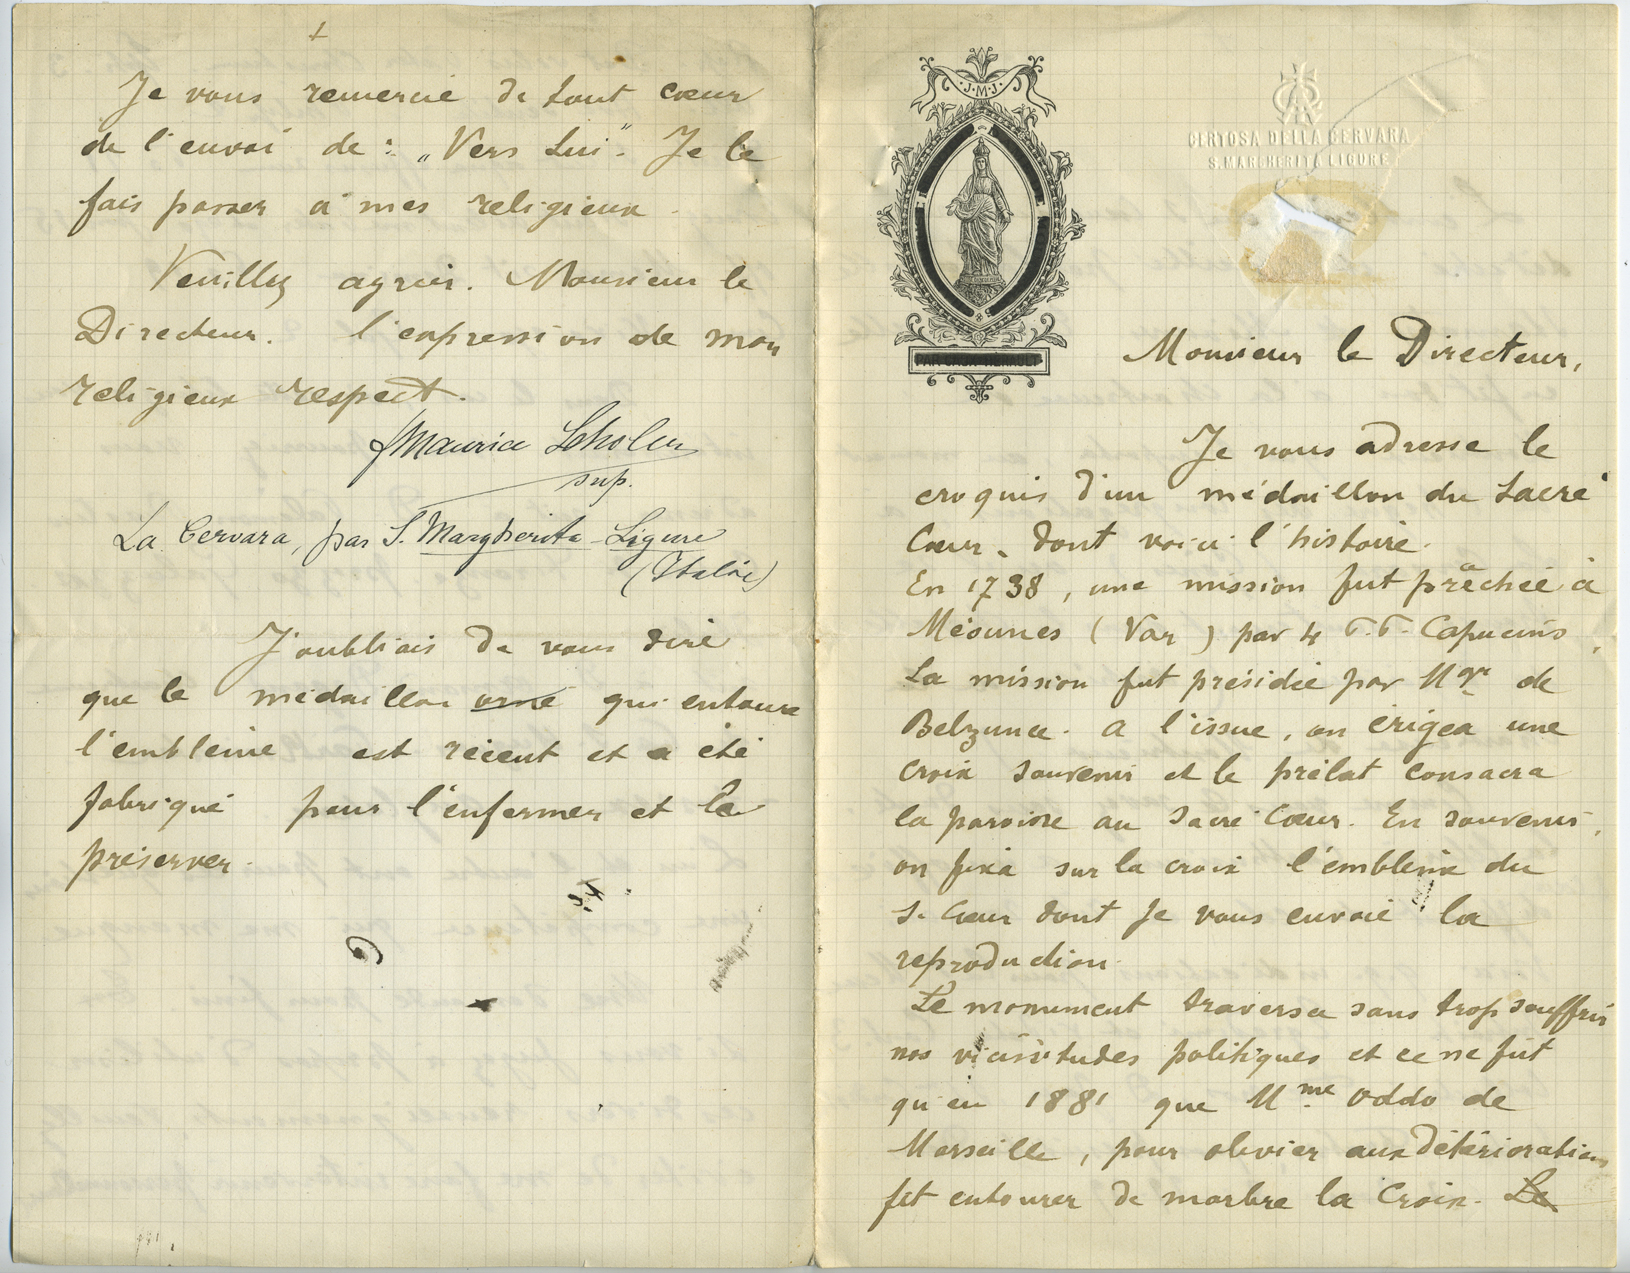 +
Je vous remercie de tout cœur
de l'envoi de : „Vers Lui". Je le
fais passer à mes religieux.
Veuillez agréer. Monsieur le
Directeur. l'expression de mon
religieux respect.
f Maurice
sup.
La Cervara, par S. Margherita-Ligure
(Italie)
J'oubliais de vous dire
que le médaillon orné qui entoure
l'emblème est récent et a été
fabriqué pour l'enfermer et le
préserver.
·J·M·J·
CERTOSA DELLA CERVARA
S. MARGHERITA LIGURE
Monsieur le Directeur,
Je vous adresse le
croquis d'un médaillon du Sacré
Cœur, dont voici l'histoire.
En 1738, une mission fut prêchée à
Méounes (Var) par 4 P.P. Capucins,
La mission fut présidée par Mgr de
Belzunce. A l'issue, on érigea une
croix souvenir et le prélat consacra
la paroisse au Sacré Cœur. En souvenir,
on fixa sur la croix l'emblème du
S. Cœur dont je vous envoie la
reproduction.
Le monument traversa sans trop souffrir
nos vicissitudes politiques et ce ne fut
qu'en 1881 que Mme Oddo de
Marseille, pour obvier aux détériorations
fit entourer de marbre la Croix. Le